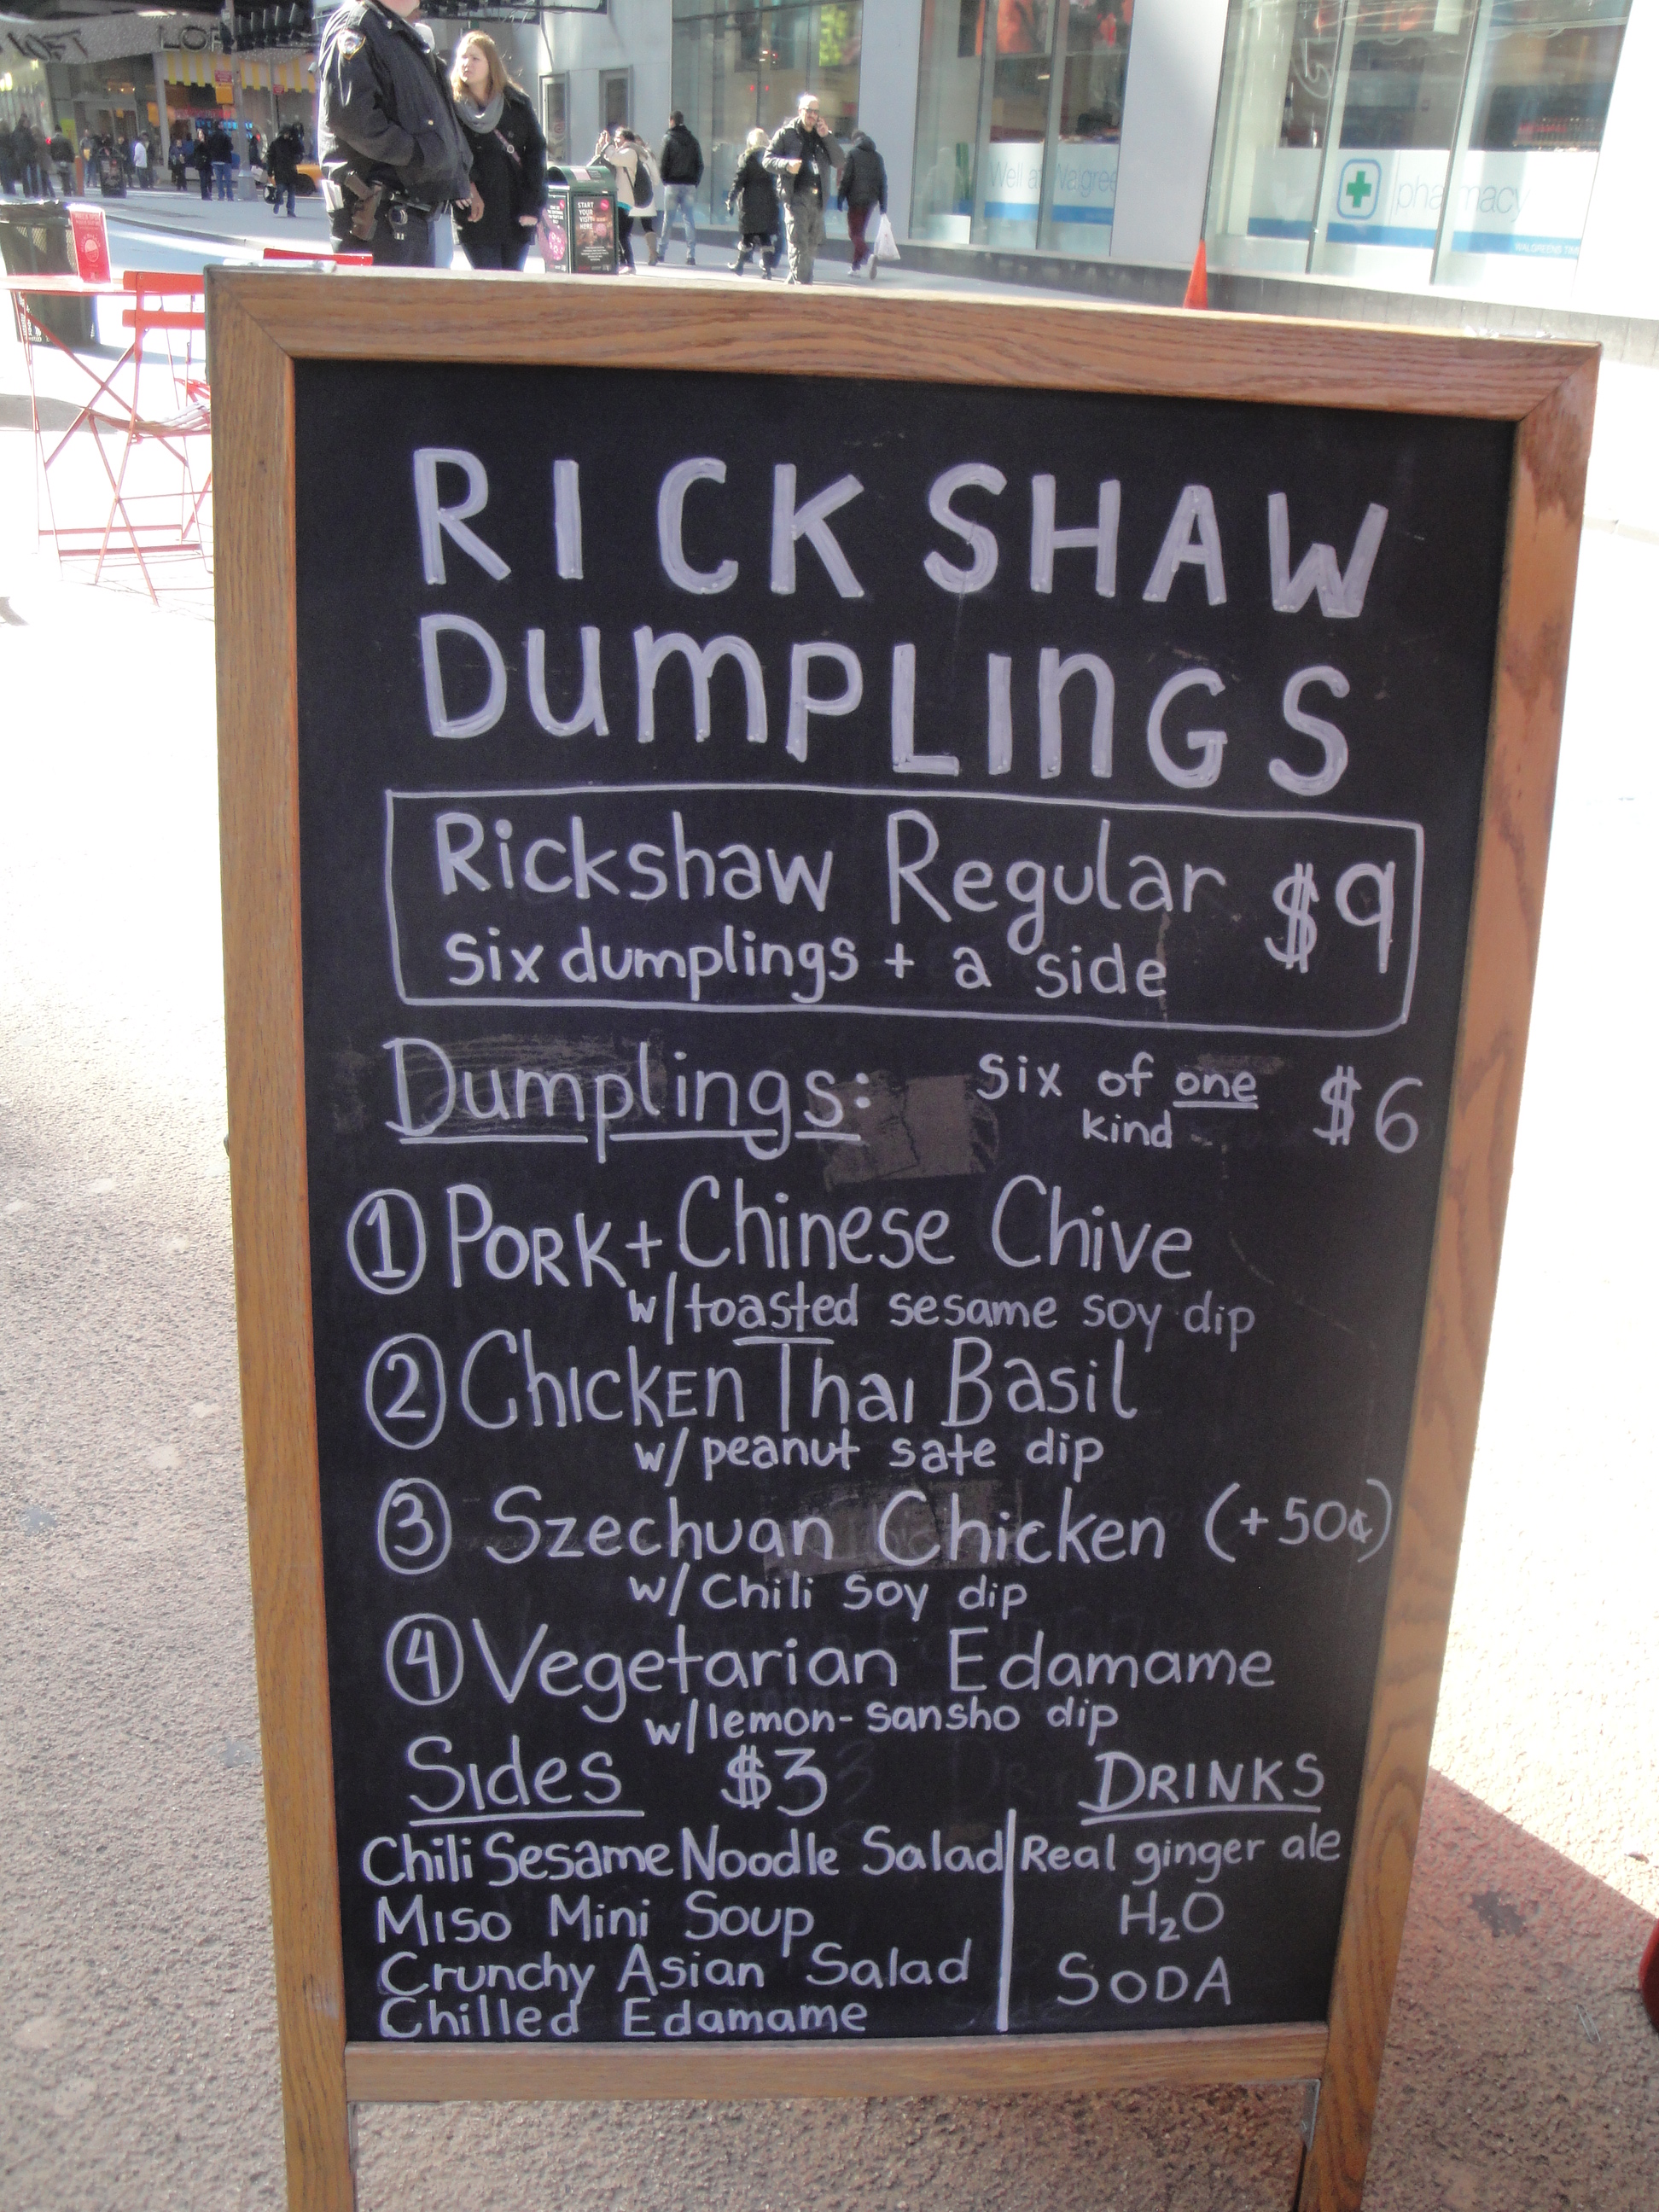 LOFT
LOF
START
YOUR
VISIT
HERE
Well at Walgree
pharmacy
WALGREENS TIM
RICKSHAW
DUMPLINGS
Rickshaw Regular $9
six dumplings + a side
Dumplings: six of one $6
kind
1 PORK + Chinese Chive
w/ toasted sesame soy dip
2 CHICKEN Thai Basil
w/ peanut sate dip
3 Szechuan Chicken (+50¢)
w/ Chili Soy dip
4 Vegetarian Edamame
w/ lemon-sansho dip
Sides $3 DRINKS
Chili Sesame Noodle Salad Real ginger ale
Miso Mini Soup H₂O
Crunchy Asian Salad SODA
Chilled Edamame